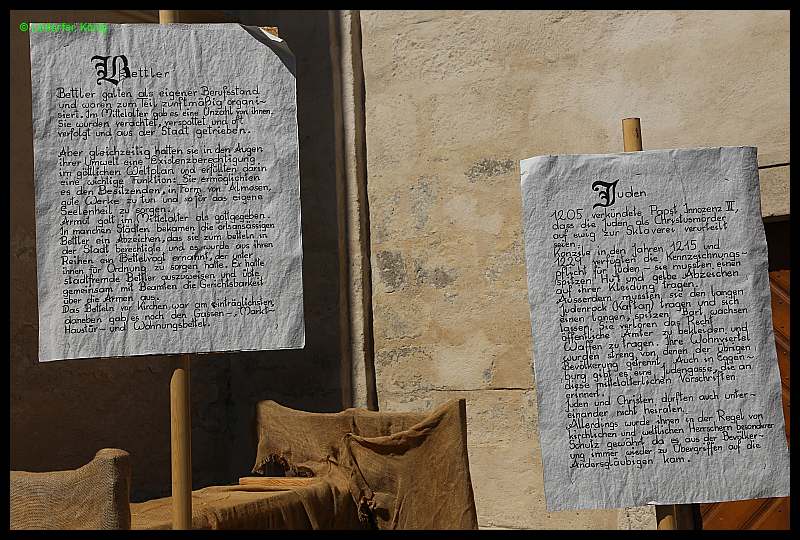 Bettler
Bettler galten als eigener Berufsstand
und waren zum Teil zunftmäßig organi-
siert. Im Mittelalter gab es eine Unzahl von ihnen.
Sie wurden verachtet, verspottet und oft
verfolgt und aus der Stadt getrieben.
Aber gleichzeitig hatten sie in den Augen
ihrer Umwelt eine Existenzberechtigung
im göttlichen Weltplan und erfüllten darin
eine wichtige Funktion: Sie ermöglichten
es den Besitzenden, in Form von Almosen,
gute Werke zu tun und so für das eigene
Seelenheil zu sorgen.
Armut galt im Mittelalter als gottgegeben.
In manchen Städten bekamen die ortsansässigen
Bettler ein Abzeichen, das sie zum betteln in
der Stadt berechtigte und es wurde aus ihren
Reihen ein Bettelvogt ernannt, der unter
ihnen für Ordnung zu sorgen hatte. Er hatte
stadtfremde Bettler auszuweisen und übte
gemeinsam mit Beamten die Gerichtsbarkeit
über die Armen aus.
Das Betteln vor Kirchen war am einträglichsten,
daneben gab es noch den Gassen-, Markt-
Haustür- und Wohnungsbettel.
Juden
1205 verkündete Papst Innozenz III,
dass die Juden als Christusmörder
auf ewig zur Sklaverei verurteilt
seien.
Konzile in den Jahren 1215 und
1221 verfügten die Kennzeichnungs-
pflicht für Juden - sie mussten einen
spitzen Hut und gelbe Abzeichen
auf ihrer Kleidung tragen.
Ausserdem mussten sie den langen
Judenrock (Kaftan) tragen und sich
einen langen, spitzen Bart wachsen
lassen. Sie verloren das Recht
öffentliche Ämter zu bekleiden und
Waffen zu tragen. Ihre Wohnviertel
wurden streng von denen der übrigen
Bevölkerung getrennt. Auch in Eggen-
burg gibt es eine Judengasse, die an
diese mittelalterlichen Vorschriften
erinnert.
Juden und Christen durften auch unter-
einander nicht heiraten.
Allerdings wurde ihnen in der Regel von
kirchlichen und weltlichen Herrschern besonderer
Schutz gewährt da es aus der Bevölker-
ung immer wieder zu Übergriffen auf die
Andersgläubigen kam.